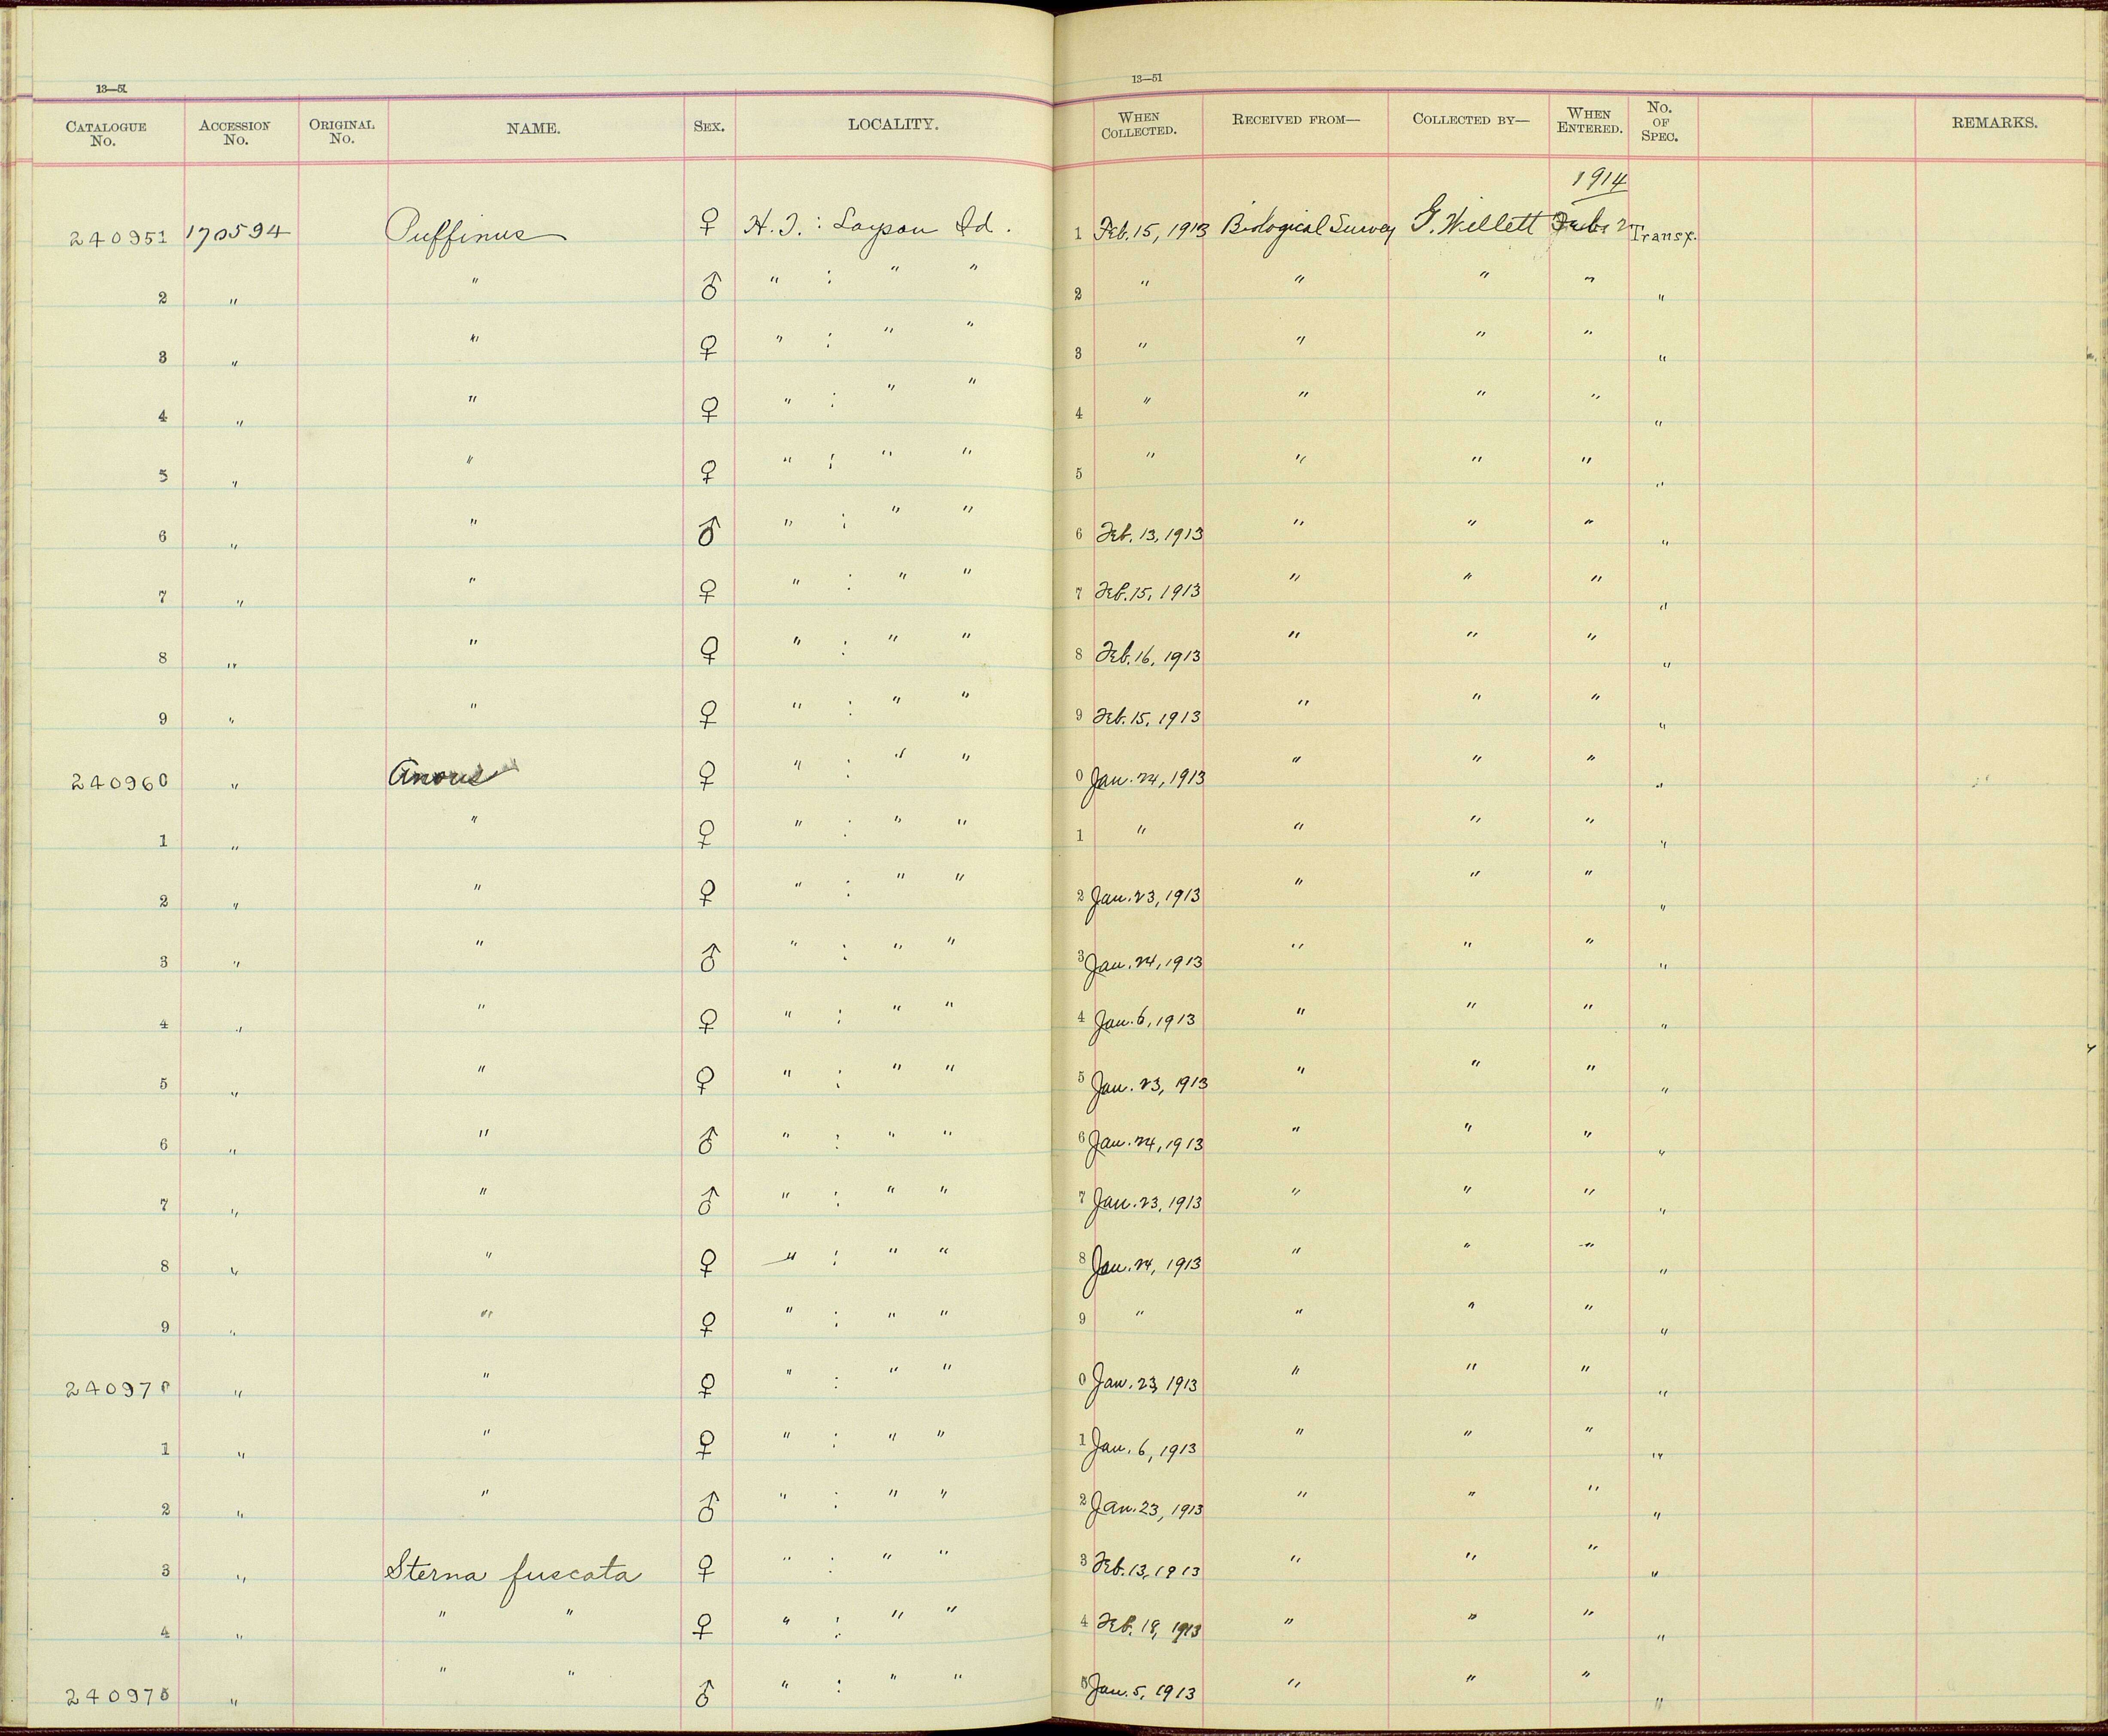 13—51 13—51
CATALOGUE No. ACCESSION No. ORIGINAL No. NAME. SEX. LOCALITY. WHEN COLLECTED. RECEIVED FROM— COLLECTED BY— WHEN ENTERED. No. OF SPEC. REMARKS.
1914
240951 170594 Puffinus ♀ H. I. : Laysan Id. 1 Feb. 15, 1913 Biological Survey G. Willett Transf.
2 " " ♂ " : " " 2 " " " " "
3 " " ♀ " : " " 3 " " " " "
4 " " ♀ " : " " 4 " " " " "
5 " " ♀ " : " " 5 " " " " "
6 " " ♂ " : " " 6 Feb. 13, 1913 " " " "
7 " " ♀ " : " " 7 Feb. 15, 1913 " " " "
8 " " ♀ " : " " 8 Feb. 16, 1913 " " " "
9 " " ♀ " : " " 9 Feb. 15, 1913 " " " "
240960 " Anous ♀ " : " " 0 Jan. 24, 1913 " " " "
1 " " ♀ " : " " 1 " " " " "
2 " " ♀ " : " " 2 Jan. 23, 1913 " " " "
3 " " ♂ " : " " 3 Jan. 24, 1913 " " " "
4 " " ♀ " : " " 4 Jan. 6, 1913 " " " "
5 " " ♀ " : " " 5 Jan. 23, 1913 " " " "
6 " " ♂ " : " " 6 Jan. 24, 1913 " " " "
7 " " ♂ " : " " 7 Jan. 23, 1913 " " " "
8 " " ♀ " : " " 8 Jan. 24, 1913 " " " "
9 " " ♀ " : " " 9 " " " " "
240970 " " ♀ " : " " 0 Jan. 23, 1913 " " " "
1 " " ♀ " : " " 1 Jan. 6, 1913 " " " "
2 " " ♂ " : " " 2 Jan. 23, 1913 " " " "
3 " Sterna fuscata ♀ " : " " 3 Feb. 13, 1913 " " " "
4 " " " ♀ " : " " 4 Feb. 18, 1913 " " " "
240975 " " " ♂ " : " " 5 Jan. 5, 1913 " " " "